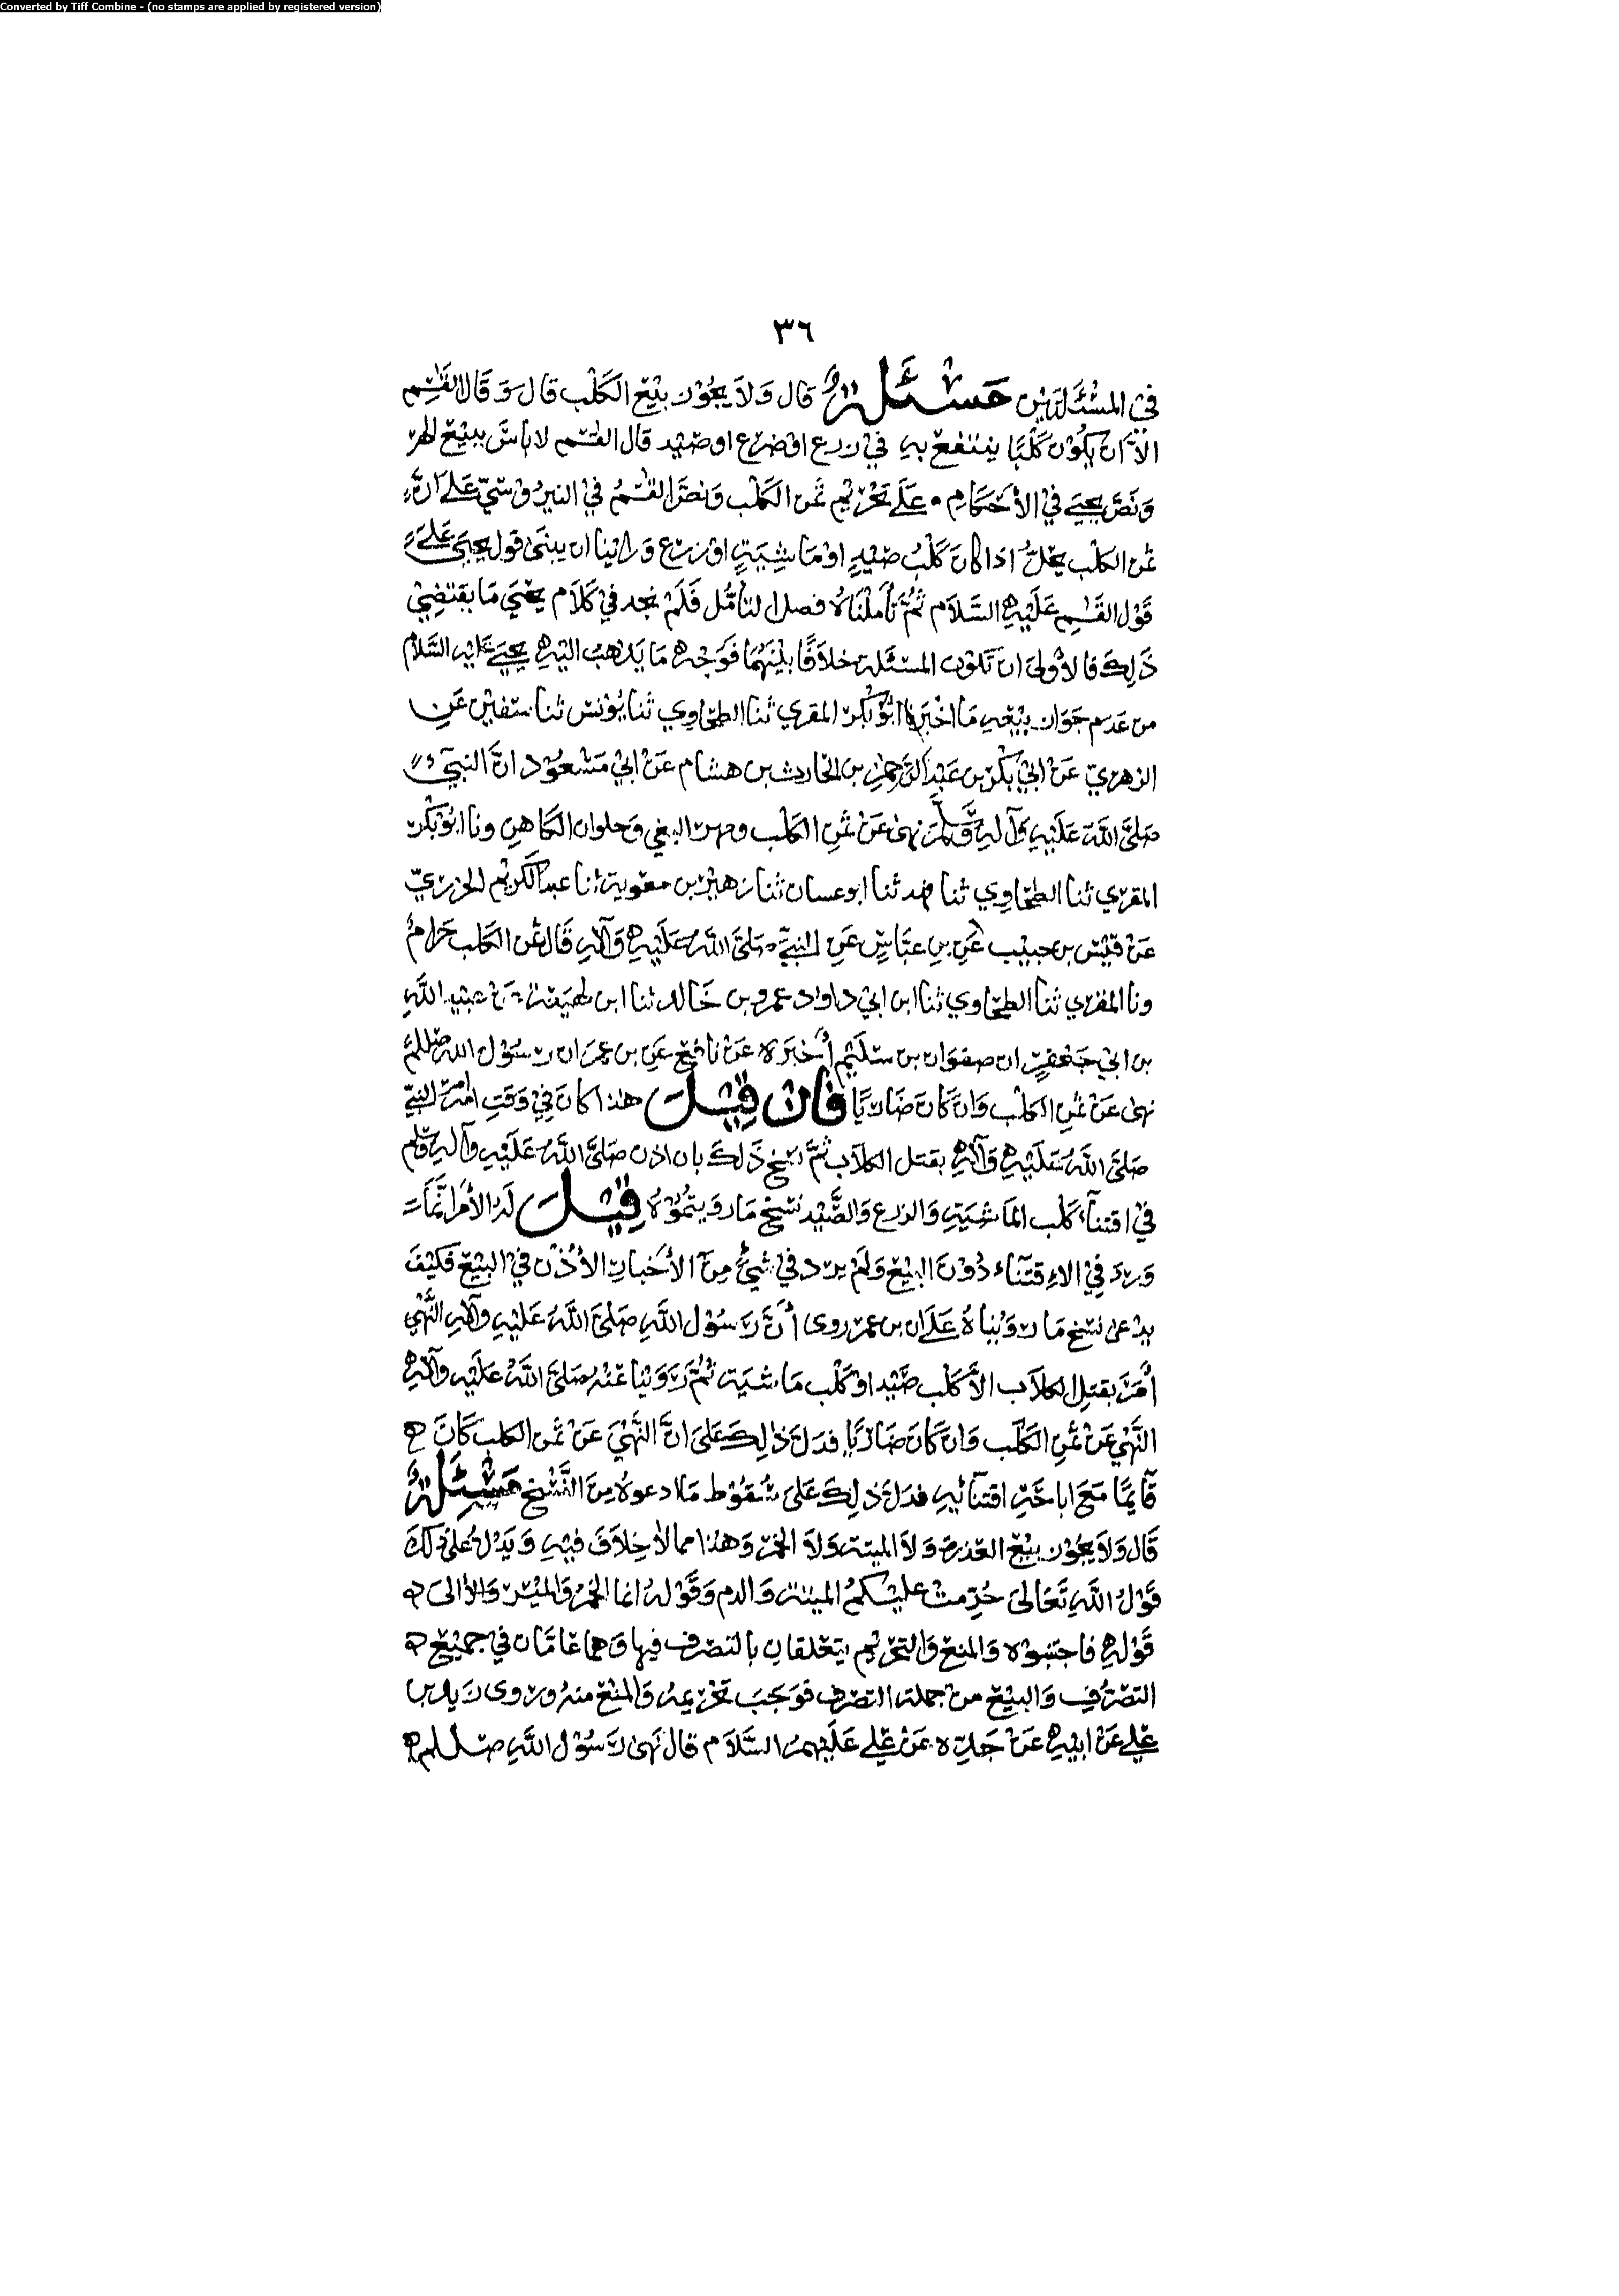 Converted by Tiff Combine - (no stamps are applied by registered version)
٣٦
في المسْئَلَتَين مَسْئَلةٌ قال وَلاَ يجُوْز بَيْع الكَلْب قال وَقَالَ القٰسِم
الاّ ان يكُوْن كَلْبًا ينتفعْ بهِ في زرع اوْ ضرْع او صَيْد قال القٰسم لا باسَ ببيْع الهر
وَنَصّ يحيَى في الأَحْكَامِ عَلَى تحْريْم ثمَن الكَلْب وَنصَّ القٰسمُ في النيرُوْسيّ عَلى انّ
ثمن الكلْب يحلُّ اذا كانَ كَلْبُ صَيْدٍ اوْ مَا شِيَةٍ اوْ زرْع وَراينا ان يبنى قول يحيَى عَلَى
قَوْل القٰسِم عَلَيْهِ السَّلاَم ثُمَّ تأملْنَاهُ فضل التأمُّل فَلَمْ نجد فيْ كَلاَم يحيَى مَا يقتضِيْ
ذَلِكَ فالأوْلى انْ تكوْن المسْئلة خلاَفًا بيْنَهُمَا فَوَجْه مَا يَذهَبُ اليْهِ يحيَى عَليه السَّلاَم
من عَدم جَوَاز بَيْعهِ مَا اخْبَرَنا ابُوْ بكْر المقري ثنا الطحَاوي ثنا يُوْنس ثنا سفيٰن عَن
الزهريّ عَنْ ابيْ بَكْر بن عَبْد الرَّحمٰن بن الحارث بن هشام عَنْ ابيْ مَسْعُوْد انَّ النبيّ
صَلَّى اللَّهُ عَلَيْهِ وَآلهِ وَسَلَّم نهىٰ عَنْ ثمَن الكَلْب ومهر البغي وَحلوان الكاهن ونا ابُوْ بَكْر
المقري ثنا الطحَاوِي ثنا فهد ثنا ابو غسان ثنا زهيْر بن معٰوية نا عبد الكريْم الجزريّ
عَنْ قيْس بن حبيْب عَن بن عبَّاسٍ عَن النبيّ صَلَّى اللَّهُ عَلَيْهِ وَآلهِ قَالَ ثمَن الكَلب حَرامٌ
ونا المقري ثنا الطحَاوي ثنا ابن ابيْ داواد عمرو بن خَالد ثنا ابن لهيعَة عَنْ عبيد اللَّهِ
بن ابيْ جَعْفَرٍ ان صفوَان بن سلَيْم أخبَره عَنْ نافع عَن بن عمَر ان رَسُوْل اللَّه صللم
نهىٰ عَنْ ثمَن الكَلْب وَانْ كَانَ ضَاريًا فان قيْل هٰذا كانَ فيْ وَقتِ امْر النَّبيّ
صَلَّى اللَّهُ عَلَيْهِ وَآلهِ بقتل الكلاَب ثمَّ نسخ ذَلكَ بان اذن صَلَّى اللَّهُ عَلَيْهِ وآلهِ وَسلم
في اقتنآء كَلْب المَاشِيَة وَالزرع وَالصَّيْد نسخ مَا رويتمُوْهُ قيْل لَه الأمر انَّمَا
وَرَدَ فيْ الاِقتنَاء دُوْنَ البيْع وَلَمْ يرد في شيءٍ مِنَ الأخبار الاُذْن فيْ البيْع فكَيْفَ
يدعىٰ نسْخ مَا روَيْنَاهُ عَلىَ ان بن عمر روى أنَّ رَسُوْل اللَّهِ صَلَّى اللَّهُ عَلَيْهِ وآلهِ النَّهي
أمَرَ بقتلِ الكلاَب الاَّ كَلْب صَيْد اوْ كَلْب مَا شيَة ثمَّ رَوَينا عَنْهُ صَلَّى اللَّهُ عَلَيْهِ وَآلهِ
النَّهْي عَنْ ثمَن الكَلْب وَانْ كَانَ ضَاريًا فدَلَّ ذالِكَ عَلى انَّ النَّهْيَ عَنْ ثمَن الكلب كَانَ
قآئمًا مَعَ اباحَة اقتنآئهِ فدَلَّ ذلِكَ عَلى سُقُوْط مَا ادعوهُ مِنَ النَّسْخ مَسْئَلةٌ
قَال وَلاَ يجُوْز بَيْع العَذرة وَلاَ الميتة وَلاَ الخَمر وَهٰذا مما لاَ خِلاَفَ فيْهِ وَيَدلّ عَلى ذلكَ
قَوْلُ اللَّهِ تَعَالىَ حُرِّمتْ عليْكمُ الميتَة وَالدم وَقَوْلهُ انما الخَمْر وَالميْسر وَالاَ الى
قوْلهِ فاجتَنِبُوْه وَالمنْع وَالتحْريْم يتَعَلقان بالتصَرف فيهَا وَهما عَامّان فيْ جميْع
التصَرُّف وَالبيْع منْ جملة التصَرف فوَجَبَ تحْريمهُ وَالمنْع منْهُ وروى زَيد بن
عَليّ عَنْ ابيْهِ عَنْ جَدّه عَنْ عَليّ عَلَيْهمُ السَّلاَم قال نَهىٰ رَسُوْل اللَّهِ صللم